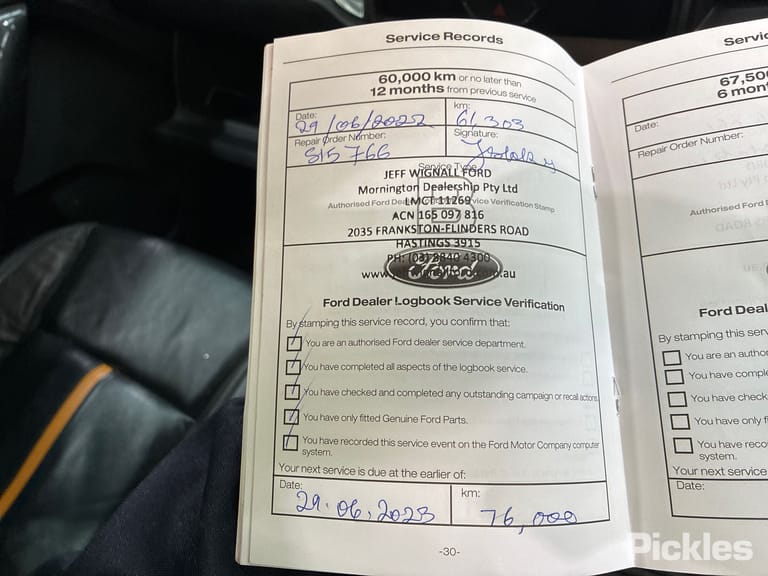 Service Records
60,000 km or no later than
12 months from previous service
Date: 29/06/2022
km: 61,303
Repair Order Number: 515766
Signature:
Service Type
JEFF WIGNALL FORD
Mornington Dealership Pty Ltd
Authorised Ford Dealer Service Verification Stamp
LMCT 11269
ACN 165 097 816
2035 FRANKSTON-FLINDERS ROAD
HASTINGS 3915
PH: (03) 8840 4300
Ford
Ford Dealer Logbook Service Verification
By stamping this service record, you confirm that:
You are an authorised Ford dealer service department.
You have completed all aspects of the logbook service.
You have checked and completed any outstanding campaign or recall actions.
You have only fitted Genuine Ford Parts.
You have recorded this service event on the Ford Motor Company computer
system.
Your next service is due at the earlier of:
Date: 29.06.2023
km: 76,000
-30-
Servic
67,50
6 mont
Date:
Repair Order Number:
Authorised Ford
Ford Deal
By stamping this serv
You are an author
You have comple
You have check
You have only f
You have reco
system.
Your next service
Date:
Pickles